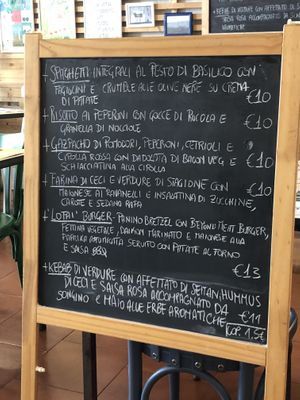 + SPAGHETTI INTEGRALI AL PESTO DI BASILICO CON
FAGIOLINI E CRUMBLE ALLE OLIVE NERE SU CREMA
DI PATATE €10
+ RISOTTO AI PEPERONI CON GOCCE DI RUCOLA E
GRANELLA DI NOCCIOLE €10
+ GAZPACHO DI POMODORI, PEPERONI, CETRIOLI E
CIPOLLA ROSSA CON DADOLATA DI BACON VEG E
SCHIACCIATINA ALLA CIPOLLA €10
+ FARINA DI CECI E VERDURE DI STAGIONE CON
MAIONESE AI RAVANELLI E INSALATINA DI ZUCCHINE,
CAROTE E SEDANO RAPA €10
+ "LOTAI" BURGER - PANINO BRETZEL CON BEYOND MEAT BURGER,
FETTINA VEGETALE, DAIKON MARINATO E MAIONESE ALLA
PAPRIKA AFFUMICATA SERVITO CON PATATE AL FORNO
E SALSA BBQ €13
+ KEBAB DI VERDURE CON AFFETTATO DI SEITAN, HUMMUS
DI CECI E SALSA ROSA ACCOMPAGNATO DA
SONGINO E MAIO ALLE ERBE AROMATICHE €11
COP. 1.5€